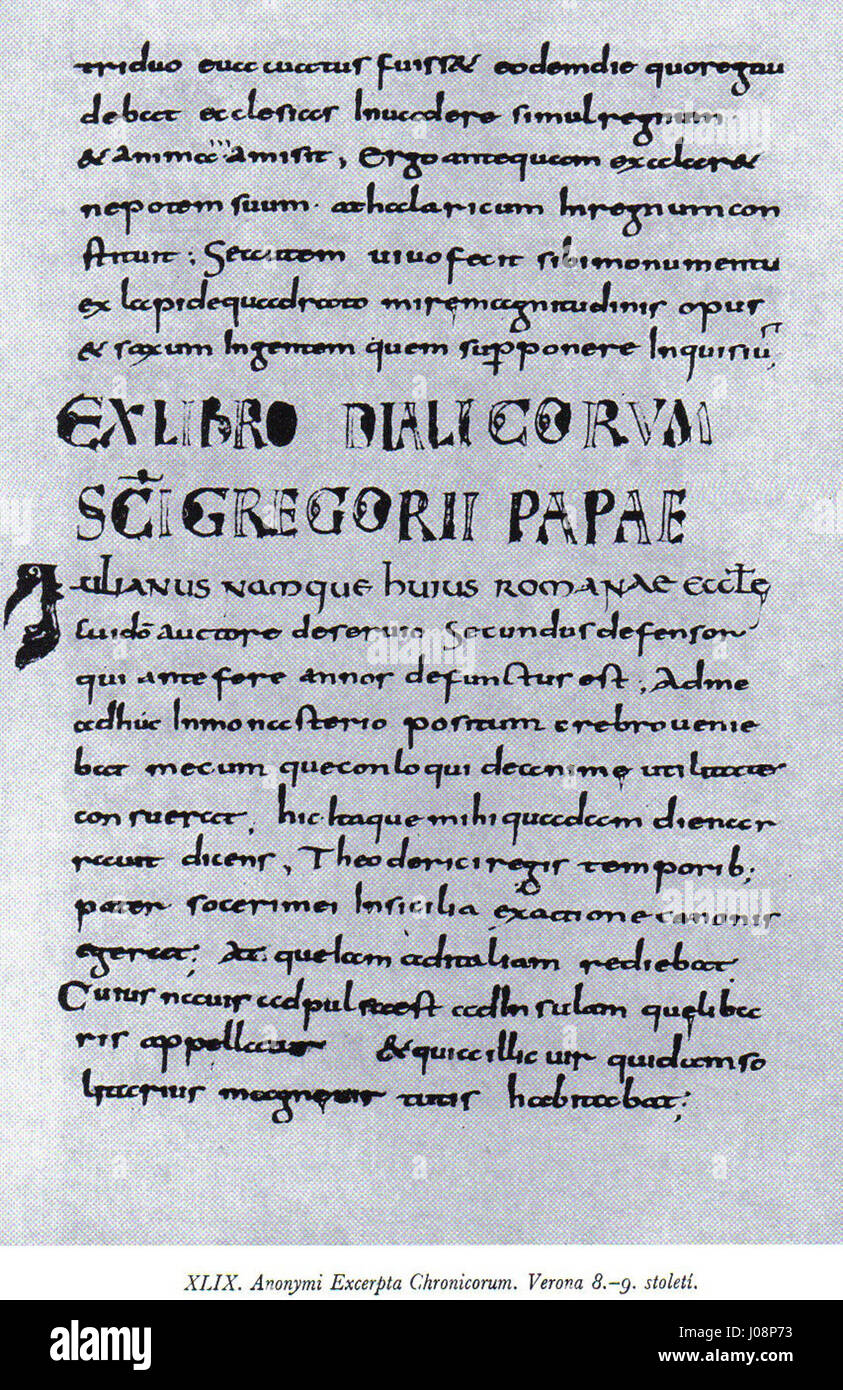 triduo euacuatus fuiss& eodemdie quoregau
debat ecclesias Inuadere simul regnum
& animam amisit; Ergo antequam exalar&
nepotem suum. athalaricum Inregnum con
stituit; Se autem uiuo fecit sibi monumentu
ex lapide quadrato mire magnitudinis opus
& saxum Ingentem quem supponere Inquisiu;
EX LIBRO DIALICORVM
SCI GREGORII PAPAE
IULIANUS Namque huius ROMANAE ECCLE
cui dō auctore deseruio Secundus defensor
qui ante fere annos defunctus est; Adme
adhuc Inmonasterio positum crebro uenie
bat mecum que conloqui de anime utilitate
consuerat; hic Itaque mihi quadam die nar
rauit dicens, Theoderici regis temporib;
pater soceri mei In sicilia exactione canonis
egerat; At quelam ad italiam rediebat
Cuius nauis adpulsa est ad Insulam que liba
ris appellatur & quia illic uir quidam so
litarius magne uirtutis habitabat;
XLIX. Anonymi Excerpta Chronicorum. Verona 8.–9. století.
alamy
Image ID: J08P73
www.alamy.com